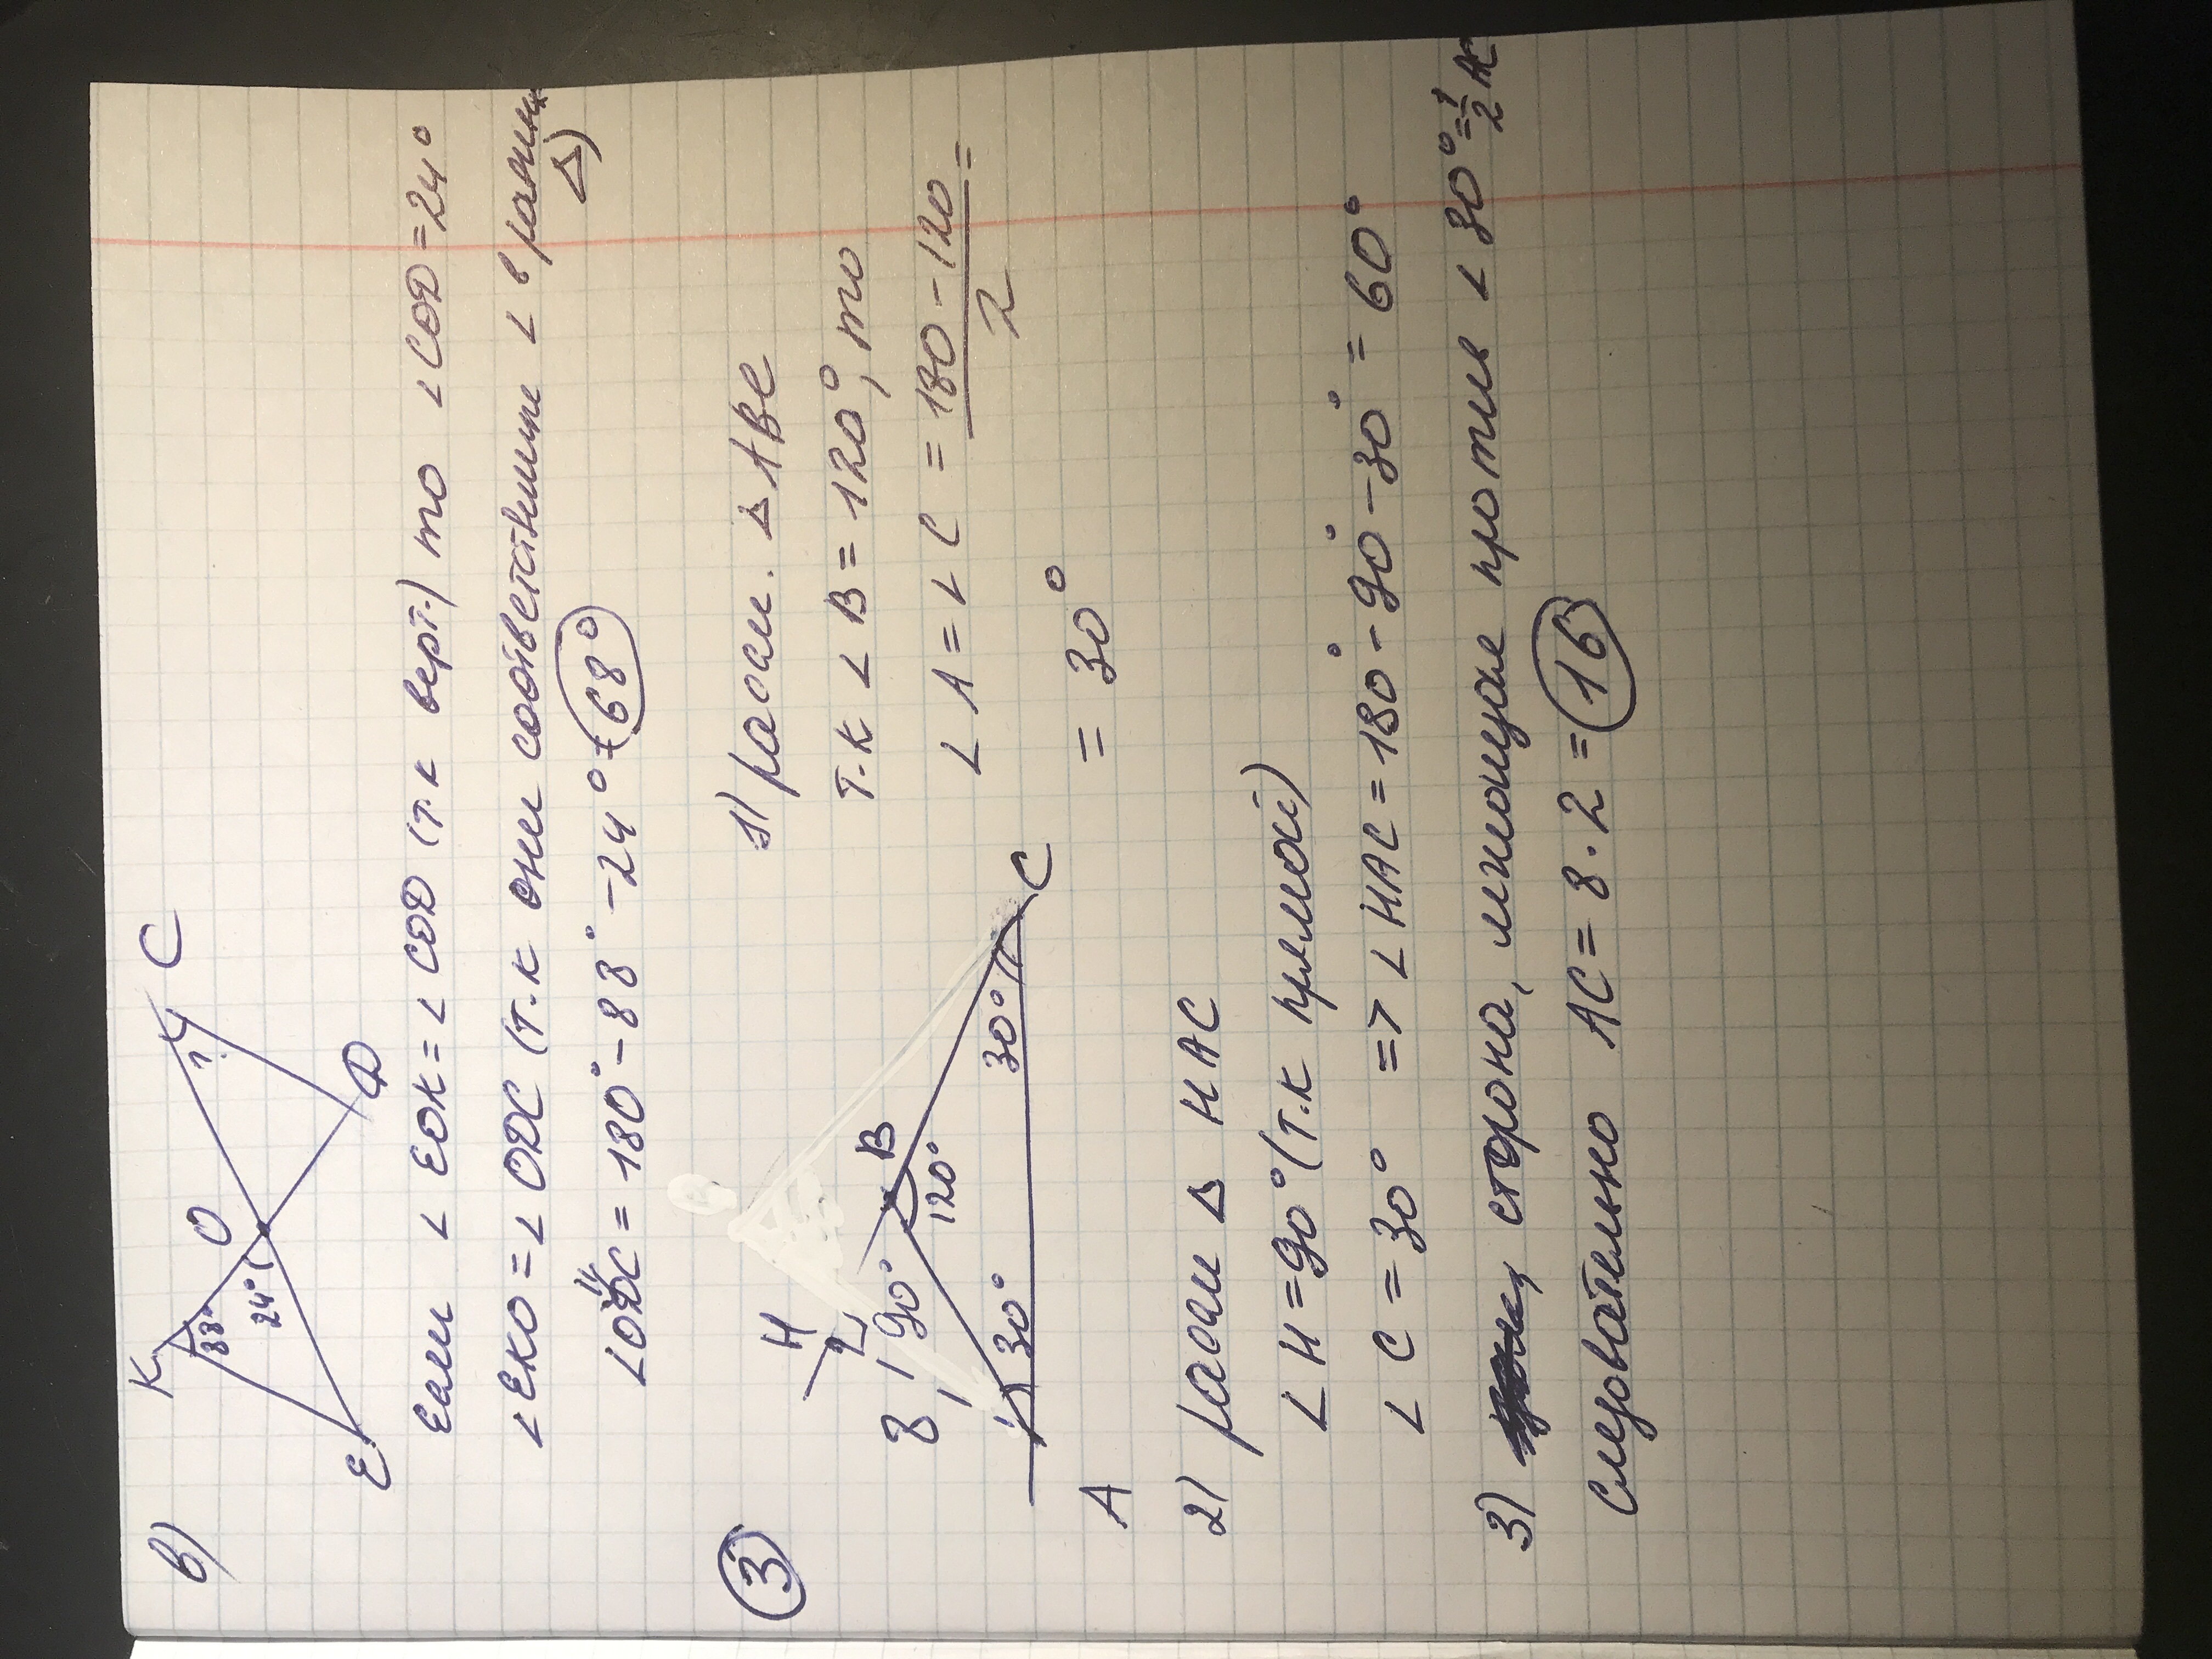 в)
К
О
С
88°
24°
Е
D
Если ∠ EOK = ∠ COD (т.к верт.) то ∠COD = 24°
∠EKO = ∠ ODC (т.к они соответствины ∠ в равных Δ)
∠ODC = 180° - 88° - 24° = 68°
3
H
B
8
90°
120°
30°
30°
C
A
1) рассм. Δ ABC
т.к ∠ B = 120°, то
∠ A = ∠ C = 180 - 120 / 2 =
= 30°
2) рассм Δ HAC
∠ H = 90° (т.к прямой)
∠ C = 30° => ∠ HAC = 180° - 90° - 30° = 60°
3) сторона, лежащие против ∠ 30° = 1/2 AC
следовательно AC = 8 · 2 = 16